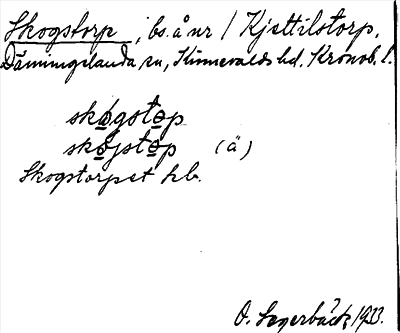 Skogstorp, bs. å nr 1 Kjettilstorp,
Däningelanda sn, Kinnevalds hd. Kronob. l.
skógstop
skójstop (ä)
Skogstorpet hb.
O. Segerbäck 1933.